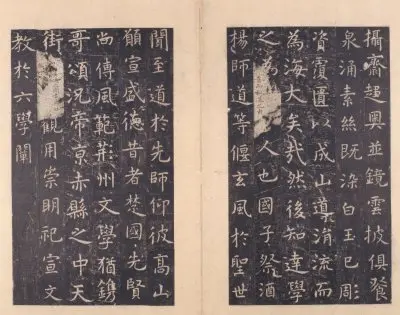 攝齋趨奧並鏡雲披俱餐
泉涌素絲既染白玉已彫
資覆匱以成山導涓流而
為海大矣哉然後知達學
之為人也國子祭酒
楊師道等偃玄風於聖世
聞至道於先師仰彼高山
願宣盛德昔者楚國先賢
尚傳風範荊州文學猶鐫
哥頌況帝京赤縣之中天
街觀用崇明祀宣文
教於六學闡